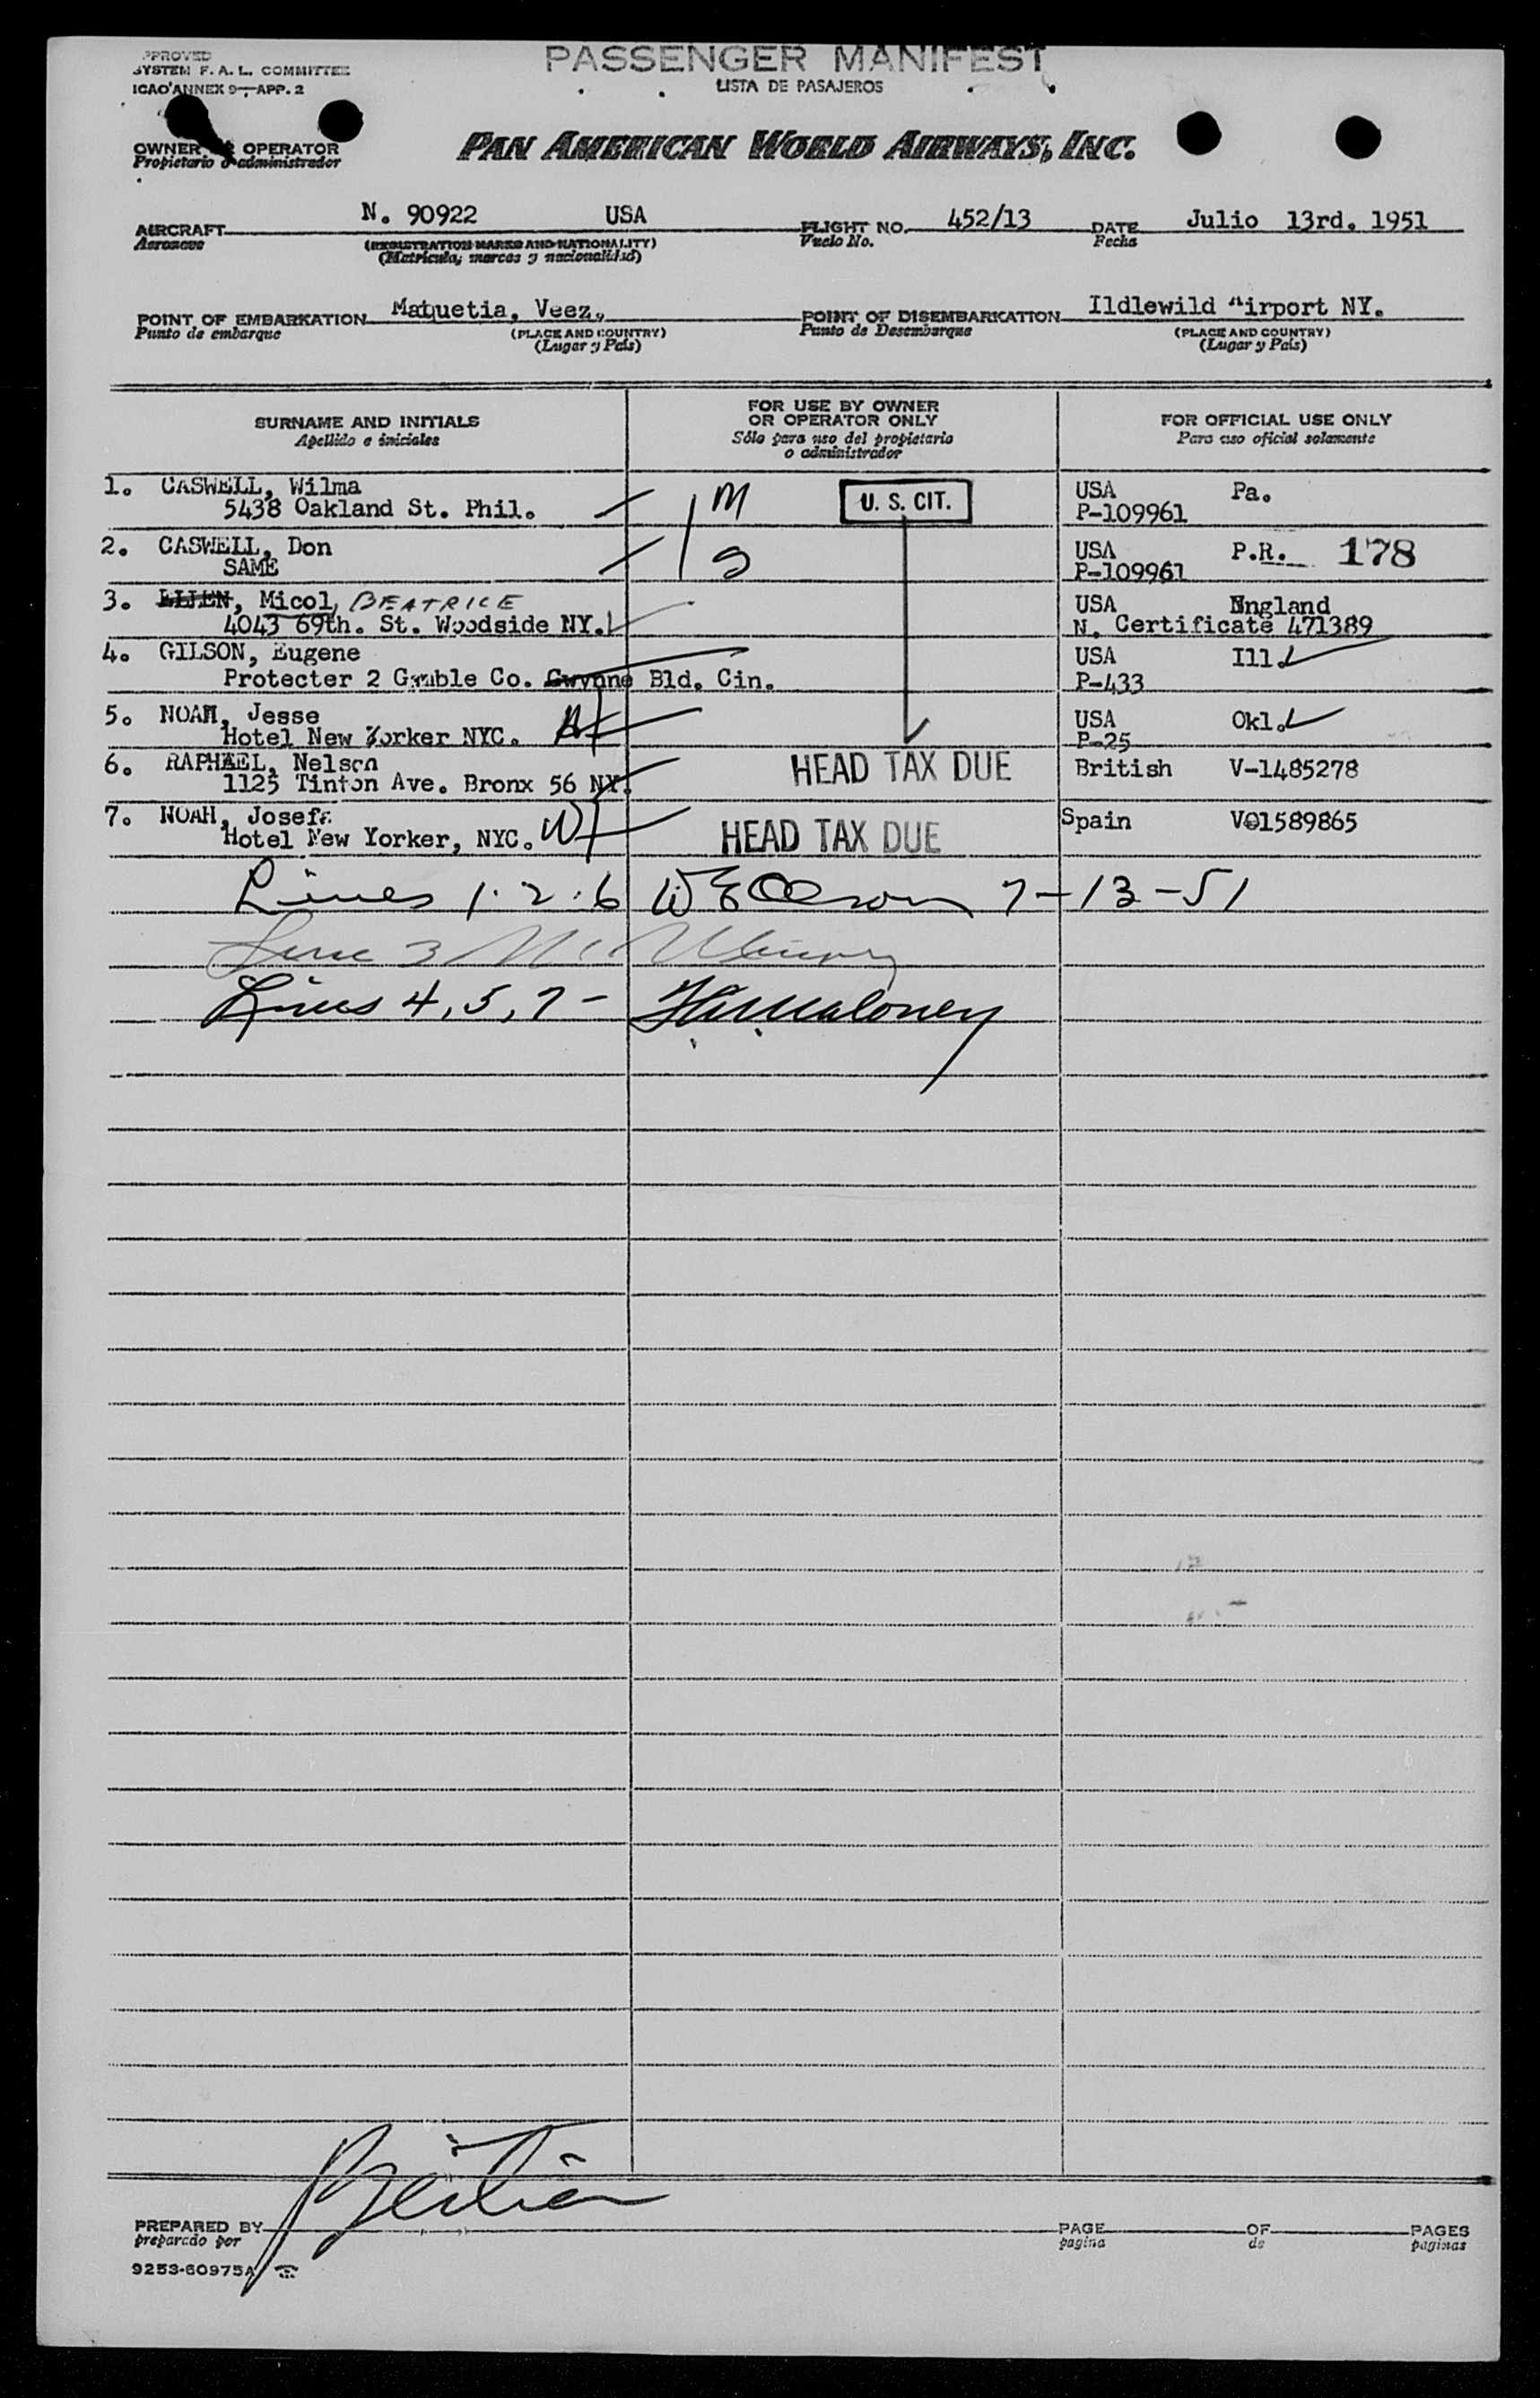 PASSENGER MANIFEST
LISTA DE PASAJEROS
SYSTEM F. A. L. COMMITTEE
ICAO ANNEX 9—APP. 2
OWNER OPERATOR
Propietario o administrador
PAN AMERICAN WORLD AIRWAYS, INC.
AIRCRAFT N. 90922 USA FLIGHT NO. 452/13 DATE Julio 13rd. 1951
Aeronave (REGISTRATION MARKS AND NATIONALITY) Vuelo No. Fecha
(Matricula, marcas y nacionalidad)
POINT OF EMBARKATION Matuetia, Veez, POINT OF DISEMBARKATION Ildlewild Airport NY.
Punto de embarque (PLACE AND COUNTRY) Punto de Desembarque (PLACE AND COUNTRY)
(Lugar y País) (Lugar y País)
SURNAME AND INITIALS FOR USE BY OWNER OR OPERATOR ONLY FOR OFFICIAL USE ONLY
Apellido e iniciales Sólo para uso del propietario o administrador Para uso oficial solamente
1. CASWELL, Wilma M U. S. CIT. USA Pa.
5438 Oakland St. Phil. P-109961
2. CASWELL, Don S USA P.R. 178
SAME P-109961
3. LIJEN, Micol, BEATRICE USA England
4043 69th. St. Woodside NY. N. Certificate 471389
4. GILSON, Eugene USA Ill.
Protecter 2 Gamble Co. Gwynne Bld. Cin. P-433
5. NOAH, Jesse USA Okl.
Hotel New Yorker NYC. H P-25
6. RAPHAEL, Nelson HEAD TAX DUE British V-1485278
1125 Tinton Ave. Bronx 56 NY.
7. NOAH, Josefa Spain V01589865
Hotel New Yorker, NYC. W HEAD TAX DUE
Lines 1·2·6 W E Olson 7-13-51
Line 3
Lines 4, 5, 7 - Maloney
PREPARED BY PAGE OF PAGES
preparado por pagina de paginas
9253-60975A